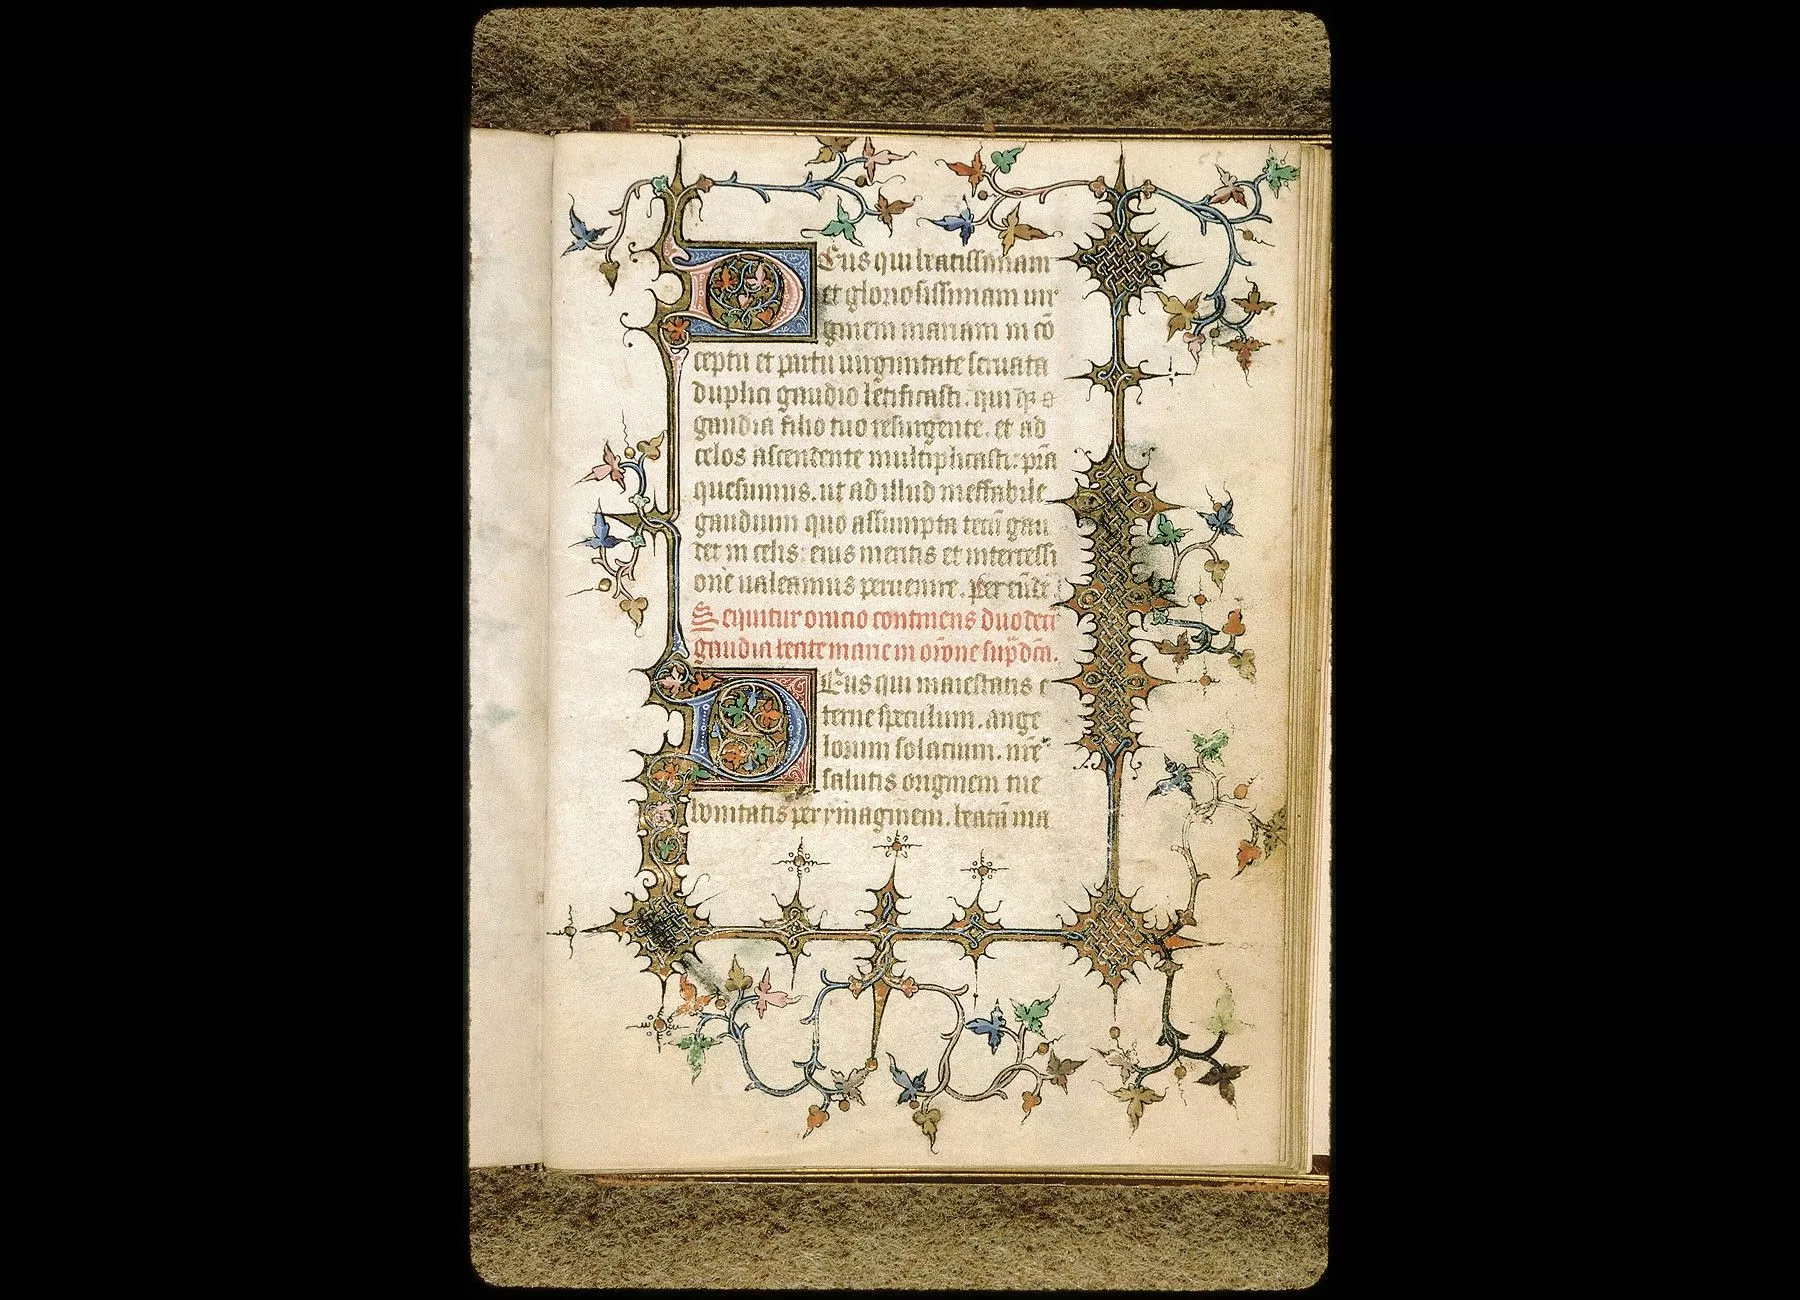 Deus qui beatissimam
et gloriosissimam uir
ginem mariam in cō
ceptu et partu uirginitate seruata
duplici gaudio letificasti. qui
gaudia filio tuo resurgente. et ad
celos ascendente multiplicasti: p̄sta
quesumus. ut ad illud ineffabile
gaudium quo assumpta tecū gau
det in celis: eius meritis et intercessi
one ualeamus peruenire. per eūdē
Sequitur oratio continens duodecī
gaudia beate marie in orōne sup̄dcā.
Deus qui maiestatis e
terne speculum. ange
lorum solacium. nr̄e
salutis originem tue
bonitatis per ymaginem. beatā ma